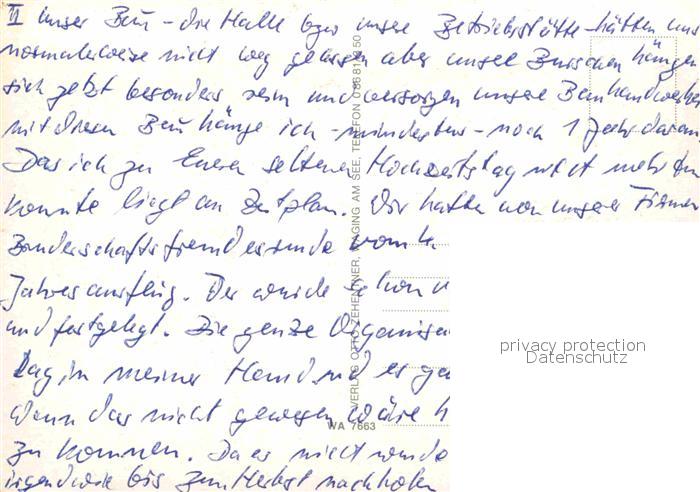 II Unser Bau - die Halle bzw unsere Betriebsstätte - hätten uns
normalerweise nicht weg gelassen aber unsere Burschen hängen
sich jetzt besonders rein und versorgen unsere Bauhandwerker
mit diesem Bau hänge ich - mindestens - noch 1 Jahr daran
Das ich zu Euerem seltenen Hochzeitstag nicht mehr
konnte liegt am Zeitplan. Wir hatten von unserer Firmen
vom
Jahresausflug. Der wurde schon
und festgelegt. Die ganze Organisa
Lag in meiner Hand und es ga
Wenn das nicht gewesen wäre h
zu kommen. Da es nicht wurde
irgendwie bis zum Herbst nachholen
VERLAG OTTO ZEHENTNER, WAGING AM SEE, TELEFON
WA 7663
privacy protection
Datenschutz